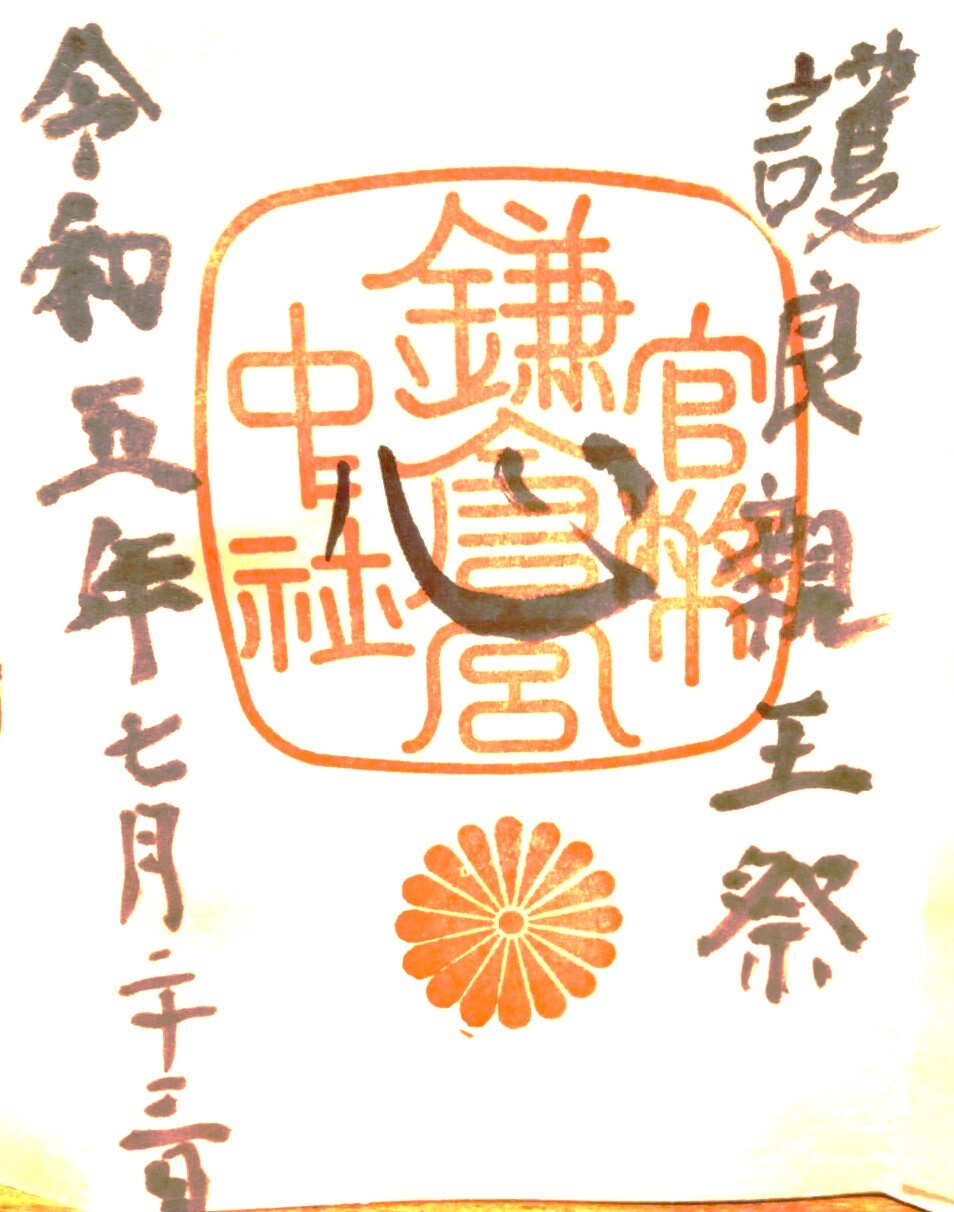 護良親王祭
官幣
鎌倉宮
中社
心
令和五年七月二十三日